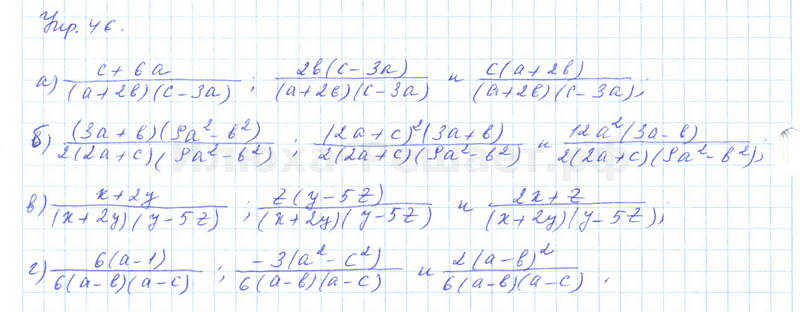 Упр. 46.
а) (c + 6a)/((a+2b)(c-3a)) ; (2b(c-3a))/((a+2b)(c-3a)) и (c(a+2b))/((a+2b)(c-3a));
б) ((3a+b)(9a²-b²))/(2(2a+c)(9a²-b²)) ; ((2a+c)²(3a+b))/(2(2a+c)(9a²-b²)) и (12a²(3a-b))/(2(2a+c)(9a²-b²));
в) (x+2y)/((x+2y)(y-5z)) ; (z(y-5z))/((x+2y)(y-5z)) и (2x+z)/((x+2y)(y-5z));
г) (6(a-1))/(6(a-b)(a-c)) ; (-3(a²-c²))/(6(a-b)(a-c)) и (2(a-b)²)/(6(a-b)(a-c)) .